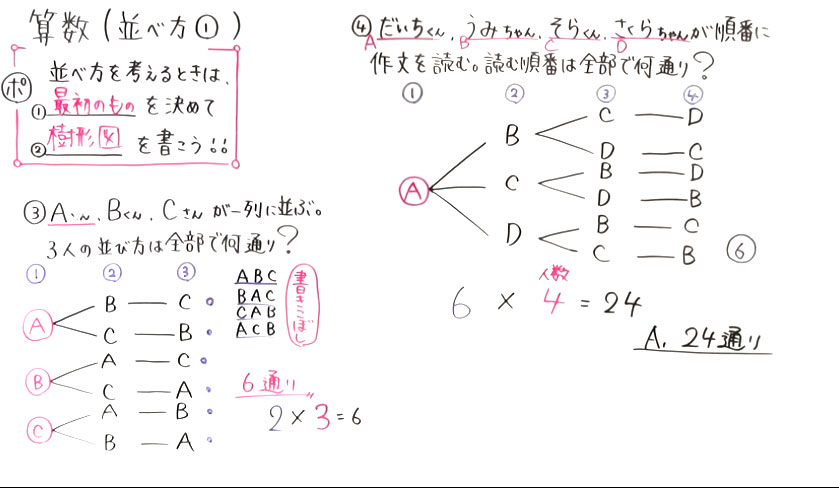 算数(並べ方①)
ポ
並べ方を考えるときは、
①最初のものを決めて
②樹形図を書こう!!
③Aさん、Bくん、Cさんが一列に並ぶ。
3人の並び方は全部で何通り?
① ② ③
A B C
C B
B A C
C A
C A B
B A
ABC
BAC
CAB
ACB
書きこぼし
6通り
2×3=6
④だいちくん、うみちゃん、そらくん、さくらちゃんが順番に
A B C D
作文を読む。読む順番は全部で何通り?
① ② ③ ④
A B C D
D C
C B D
D B
D B C
C B
⑥
人数
6×4=24
A、24通り